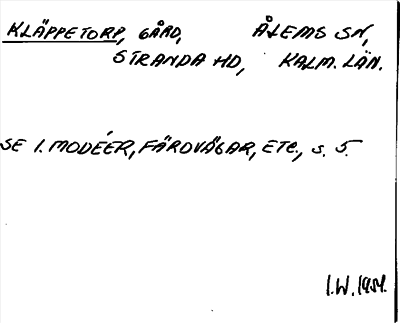 KLÄPPETORP, GÅRD, ÅLEMS SN,
STRANDA HD, KALM. LÄN.
SE I. MODÉER, FÄRDVÄGAR, ETC., s. 5.
I.W. 1954.